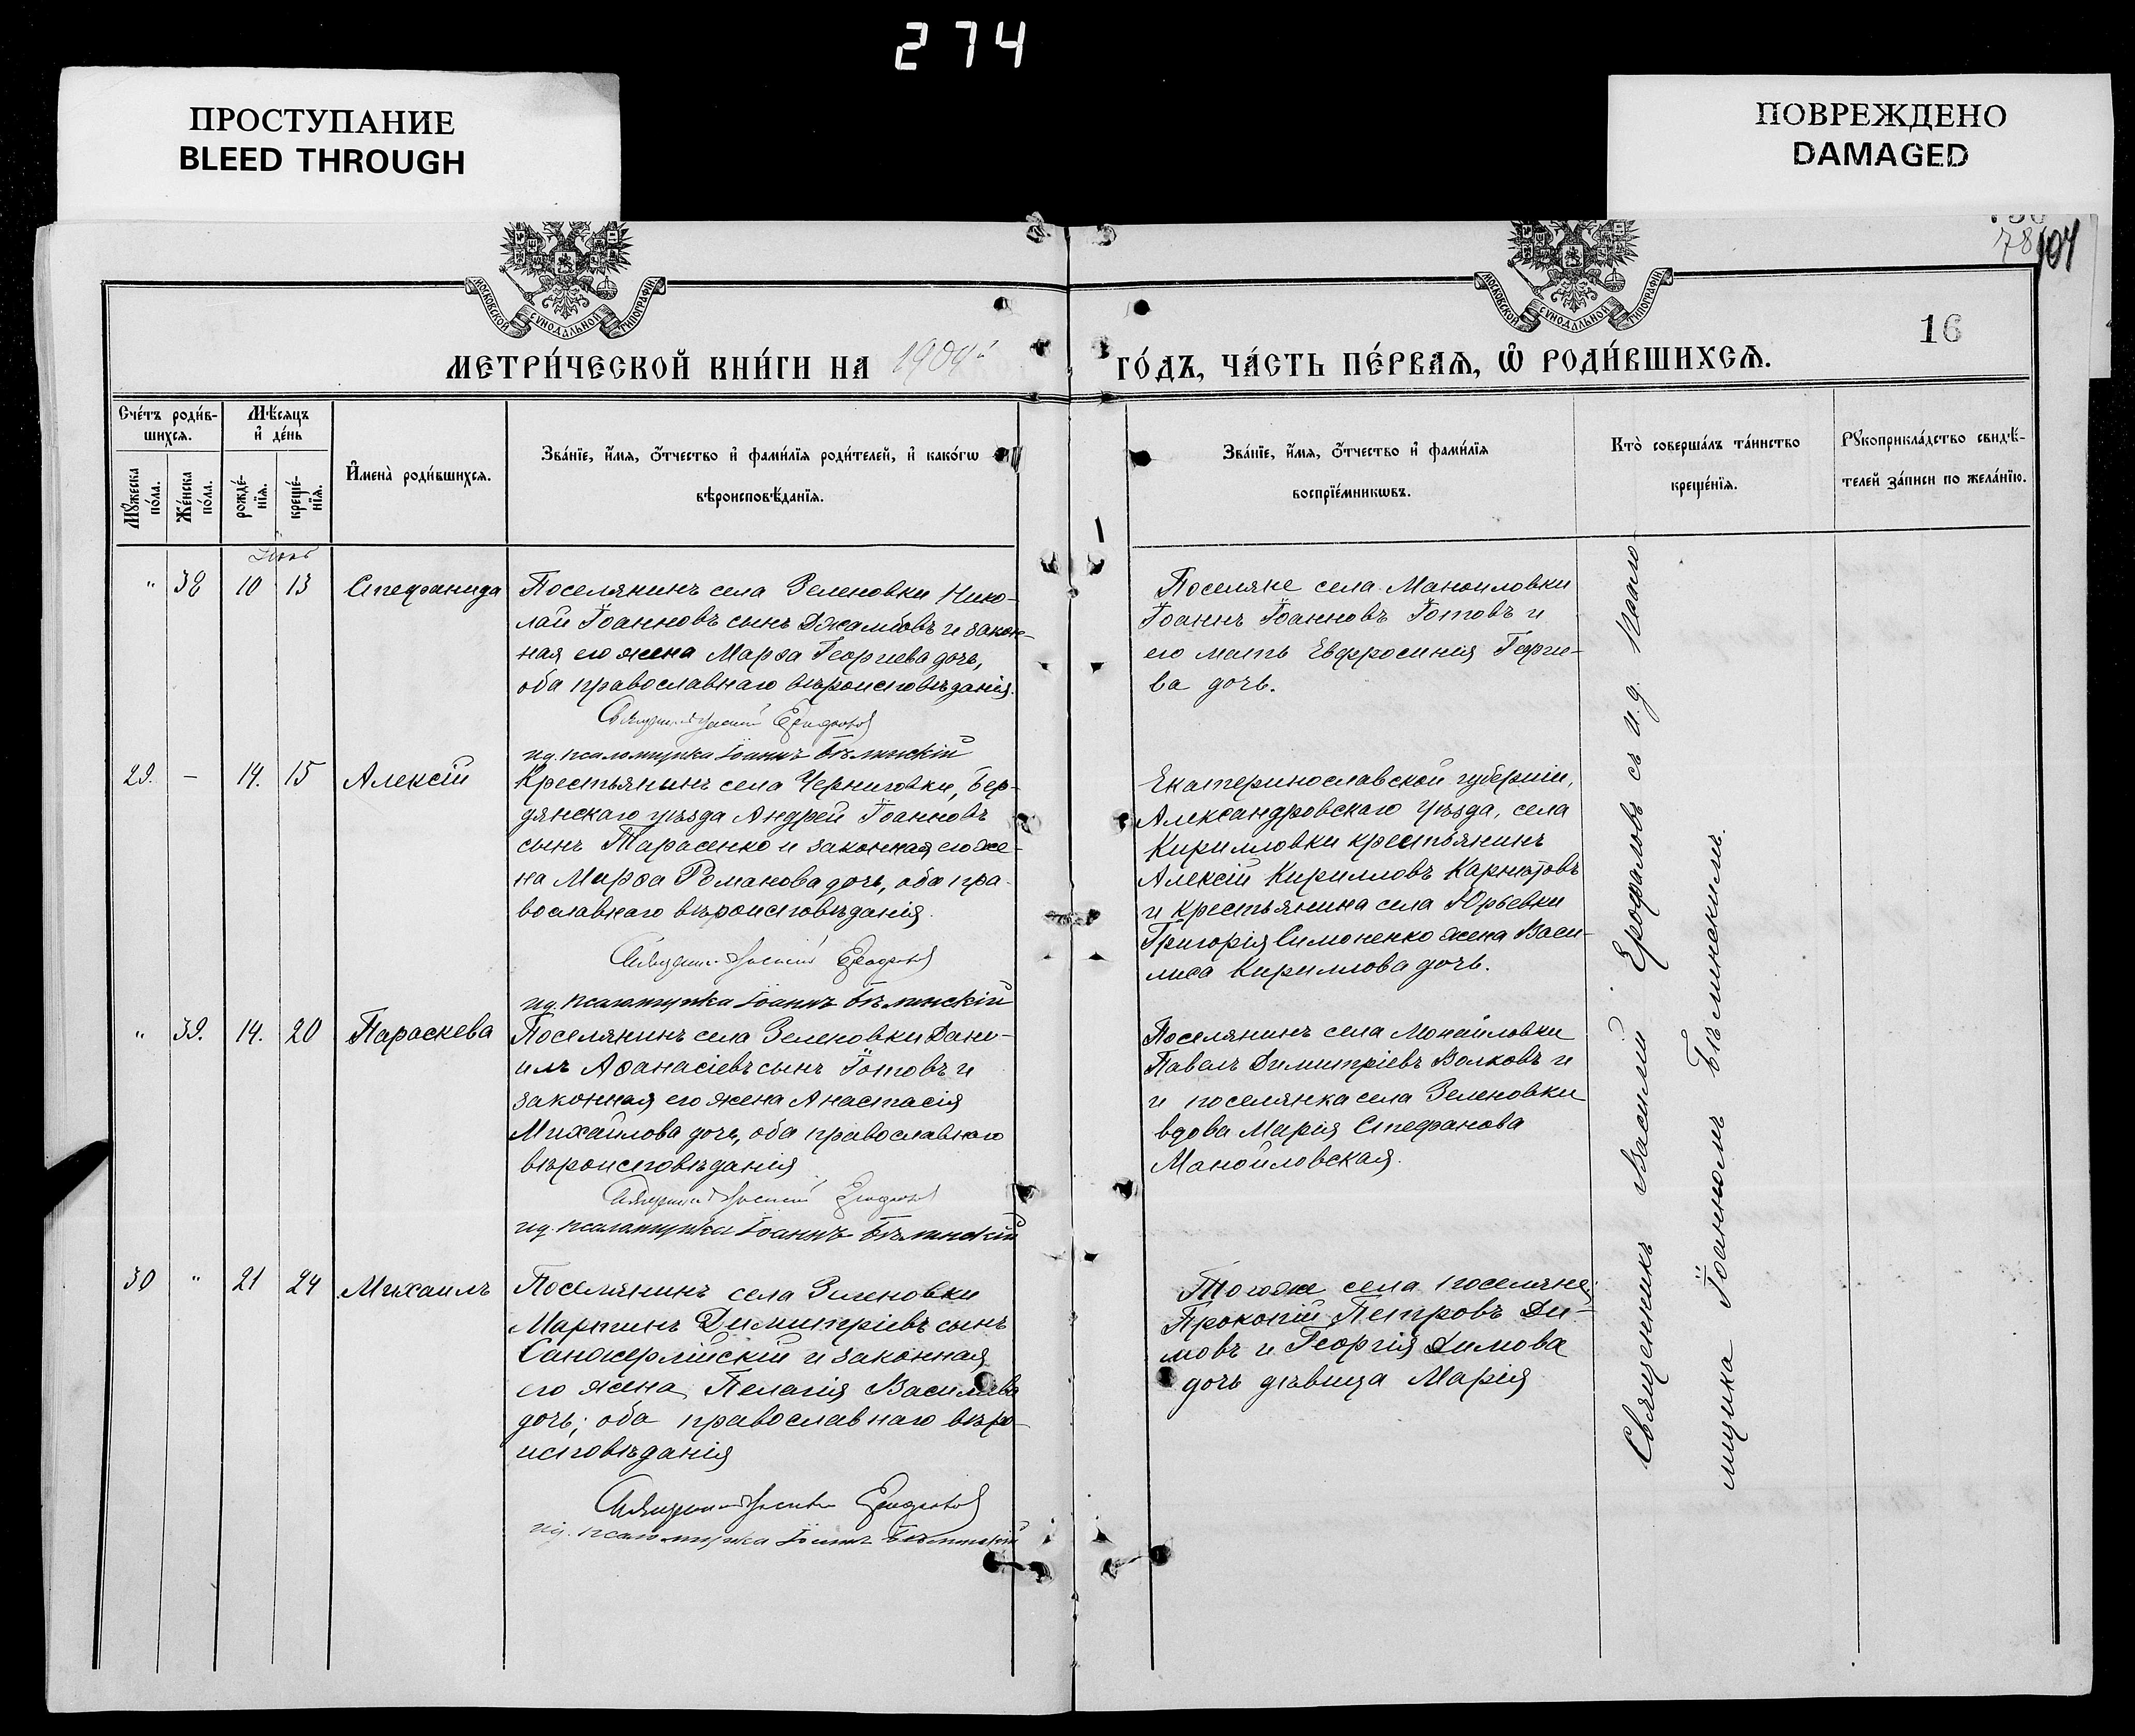 274
ПРОСТУПАНИЕ
BLEED THROUGH
ПОВРЕЖДЕНО
DAMAGED
78
104
МОСКОВСКОЙ СѴНОДАЛЬНОЙ ТИПОГРАФІИ
МОСКОВСКОЙ СѴНОДАЛЬНОЙ ТИПОГРАФІИ
16
МЕТРИ́ЧЕСКОЙ КНИ́ГИ НА 1904й ГО́ДЪ, ЧА́СТЬ ПЕ́РВАѦ, Ѿ РОДИ́ВШИХСѦ.
Сче́тъ роди́в-
шихсѧ.
Мѣ́сѧцъ
и҆ де́нь
Мꙋ́жеска
по́ла.
Же́нска
по́ла.
рожде́-
нїѧ.
креще́-
нїѧ.
И҆мена̀ роди́вшихсѧ.
Зва́нїе, и҆́мѧ, ѻ҆́тчество и҆ фами́лїѧ роди́телей, и҆ како́гѡ
вѣроисповѣ́данїѧ.
Зва́нїе, и҆́мѧ, ѻ҆́тчество и҆ фами́лїѧ
воспрїе́мникѡвъ.
Кто̀ соверша́лъ та́инство
креще́нїѧ.
Рꙋкоприкла́дство свидѣ́-
телей за́писи по жела́нїю.
" 38 10 13 Стефанида
Поселянинъ села Зеленовки Нико-
лай Іоанновъ сынъ Джамбовъ и закон-
ная его жена Марѳа Георгіева дочь,
оба православнаго вѣроисповѣданія.
Священникъ Василій Ерофаловъ
ид. псаломщика Іоаннъ Бѣлинскій
Поселяне села Маноиловки
Іоаннъ Іоанновъ Готовъ и
его мать Евфросинія Георгіе-
ва дочь.
29. — 14. 15 Алексій
Крестьянинъ села Черниговки, Бер-
дянскаго уѣзда Андрей Іоанновъ
сынъ Тарасенко и законная его же-
на Марѳа Романова дочь, оба пра-
вославнаго вѣроисповѣданія.
Священникъ Василій Ерофаловъ
ид. псаломщика Іоаннъ Бѣлинскій
Екатеринославской губерніи,
Александровскаго уѣзда, села
Кирилловки крестьянинъ
Алексій Кирилловъ
и крестьянина села Юрьевки
Григорія Симоненко жена Васи-
лиса Кириллова дочь.
" 39. 14. 20 Параскева
Поселянинъ села Зеленовки Дані-
илъ Аѳанасіевъ сынъ Готовъ и
законная его жена Анастасія
Михайлова дочь, оба православнаго
вѣроисповѣданія
Священникъ Василій Ерофаловъ
ид. псаломщика Іоаннъ Бѣлинскій
Поселянинъ села Монайловки
Павелъ Димитріевъ Волковъ и
и поселянка села Зеленовки
вдова Марія Стефанова
Манойловская.
30 " 21 24 Михаилъ
Поселянинъ села Зеленовки
Мартинъ Димитріевъ сынъ
Санжерлійскій и законная
его жена Пелагія Васильева
дочь; оба православнаго вѣро-
исповѣданія
Священникъ Василій Ерофаловъ
ид. псаломщика Іоаннъ Бѣлинскій
Тогоже села поселяне:
Прокопій Петровъ Ди-
мовъ и Георгія Димова
дочь дѣвица Марія
Священникъ Василій Ерофаловъ съ и.д. псало-
мщика Іоанномъ Бѣлинскимъ.